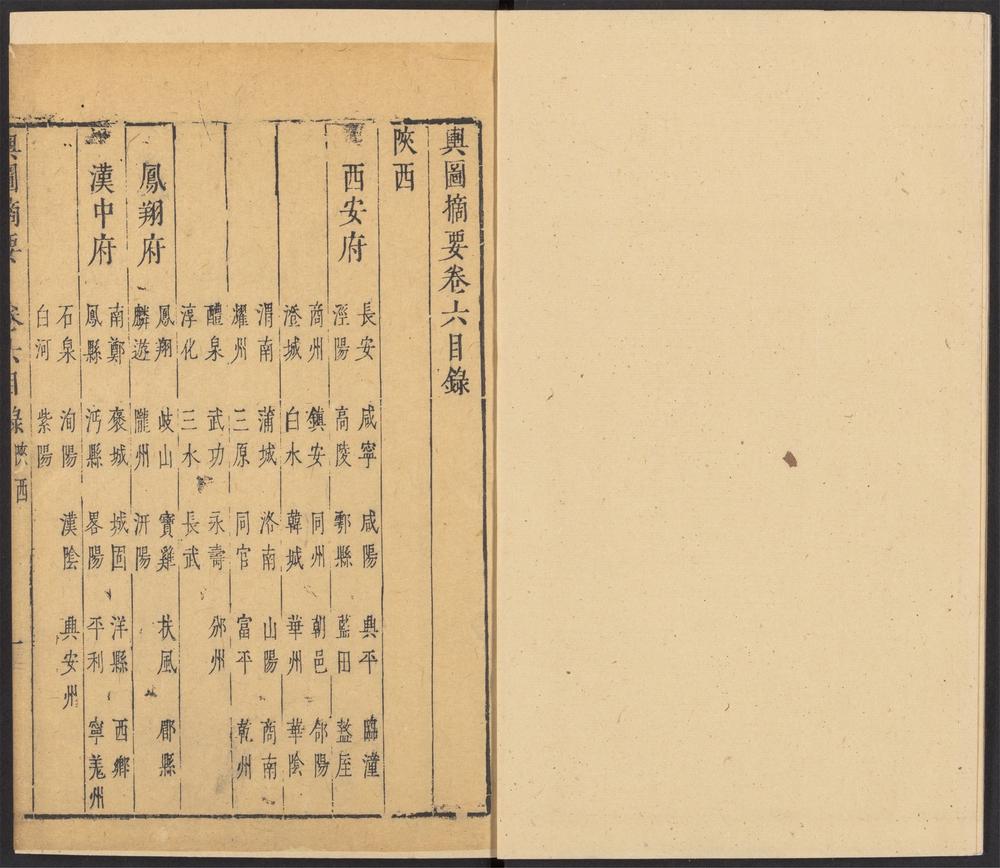 輿圖摘要卷六目錄
陜西
西安府
長安 咸寧 咸陽 興平 臨潼
涇陽 高陵 鄠縣 藍田 盩厔
商州 鎮安 同州 朝邑 郃陽
澄城 白水 韓城 華州 華陰
渭南 蒲城 洛南 山陽 商南
耀州 三原 同官 富平 乾州
醴泉 武功 永壽 邠州
淳化 三水 長武
鳳翔府
鳳翔 岐山 寶雞 扶風 郿縣
麟遊 隴州 汧陽
漢中府
南鄭 褒城 城固 洋縣 西鄉
鳳縣 沔縣 畧陽 平利 寧羌州
石泉 洵陽 漢陰 興安州
白河 紫陽
輿圖摘要 卷六目錄 陜西 一